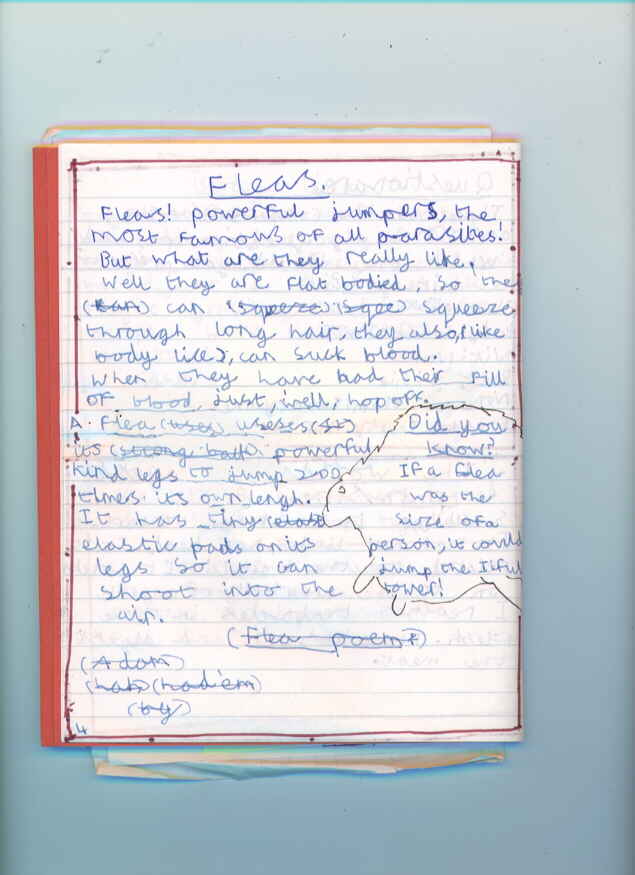 Fleas.
Fleas! powerful jumpers, the
most famous of all parasites!
But what are they really like,
Well they are flat bodied, so the
(can) can (squeeze) (sqee) squeeze
through long hair, they also, (like
body lice), can suck blood.
When they have had their fill
of blood, just, well, hop off.
A flea (uses) useses (st)
its (strong back) powerful
hind legs to jump 200
times its own lengh.
It has tiny (elast
elastic pads on its
legs so it can
shoot into the
air.
Did you
know?
If a flea
was the
size of a
person, it could
jump the Iiful
tower!
(Flea poem?)
(Adam)
(hab) (had'em)
(by)
4